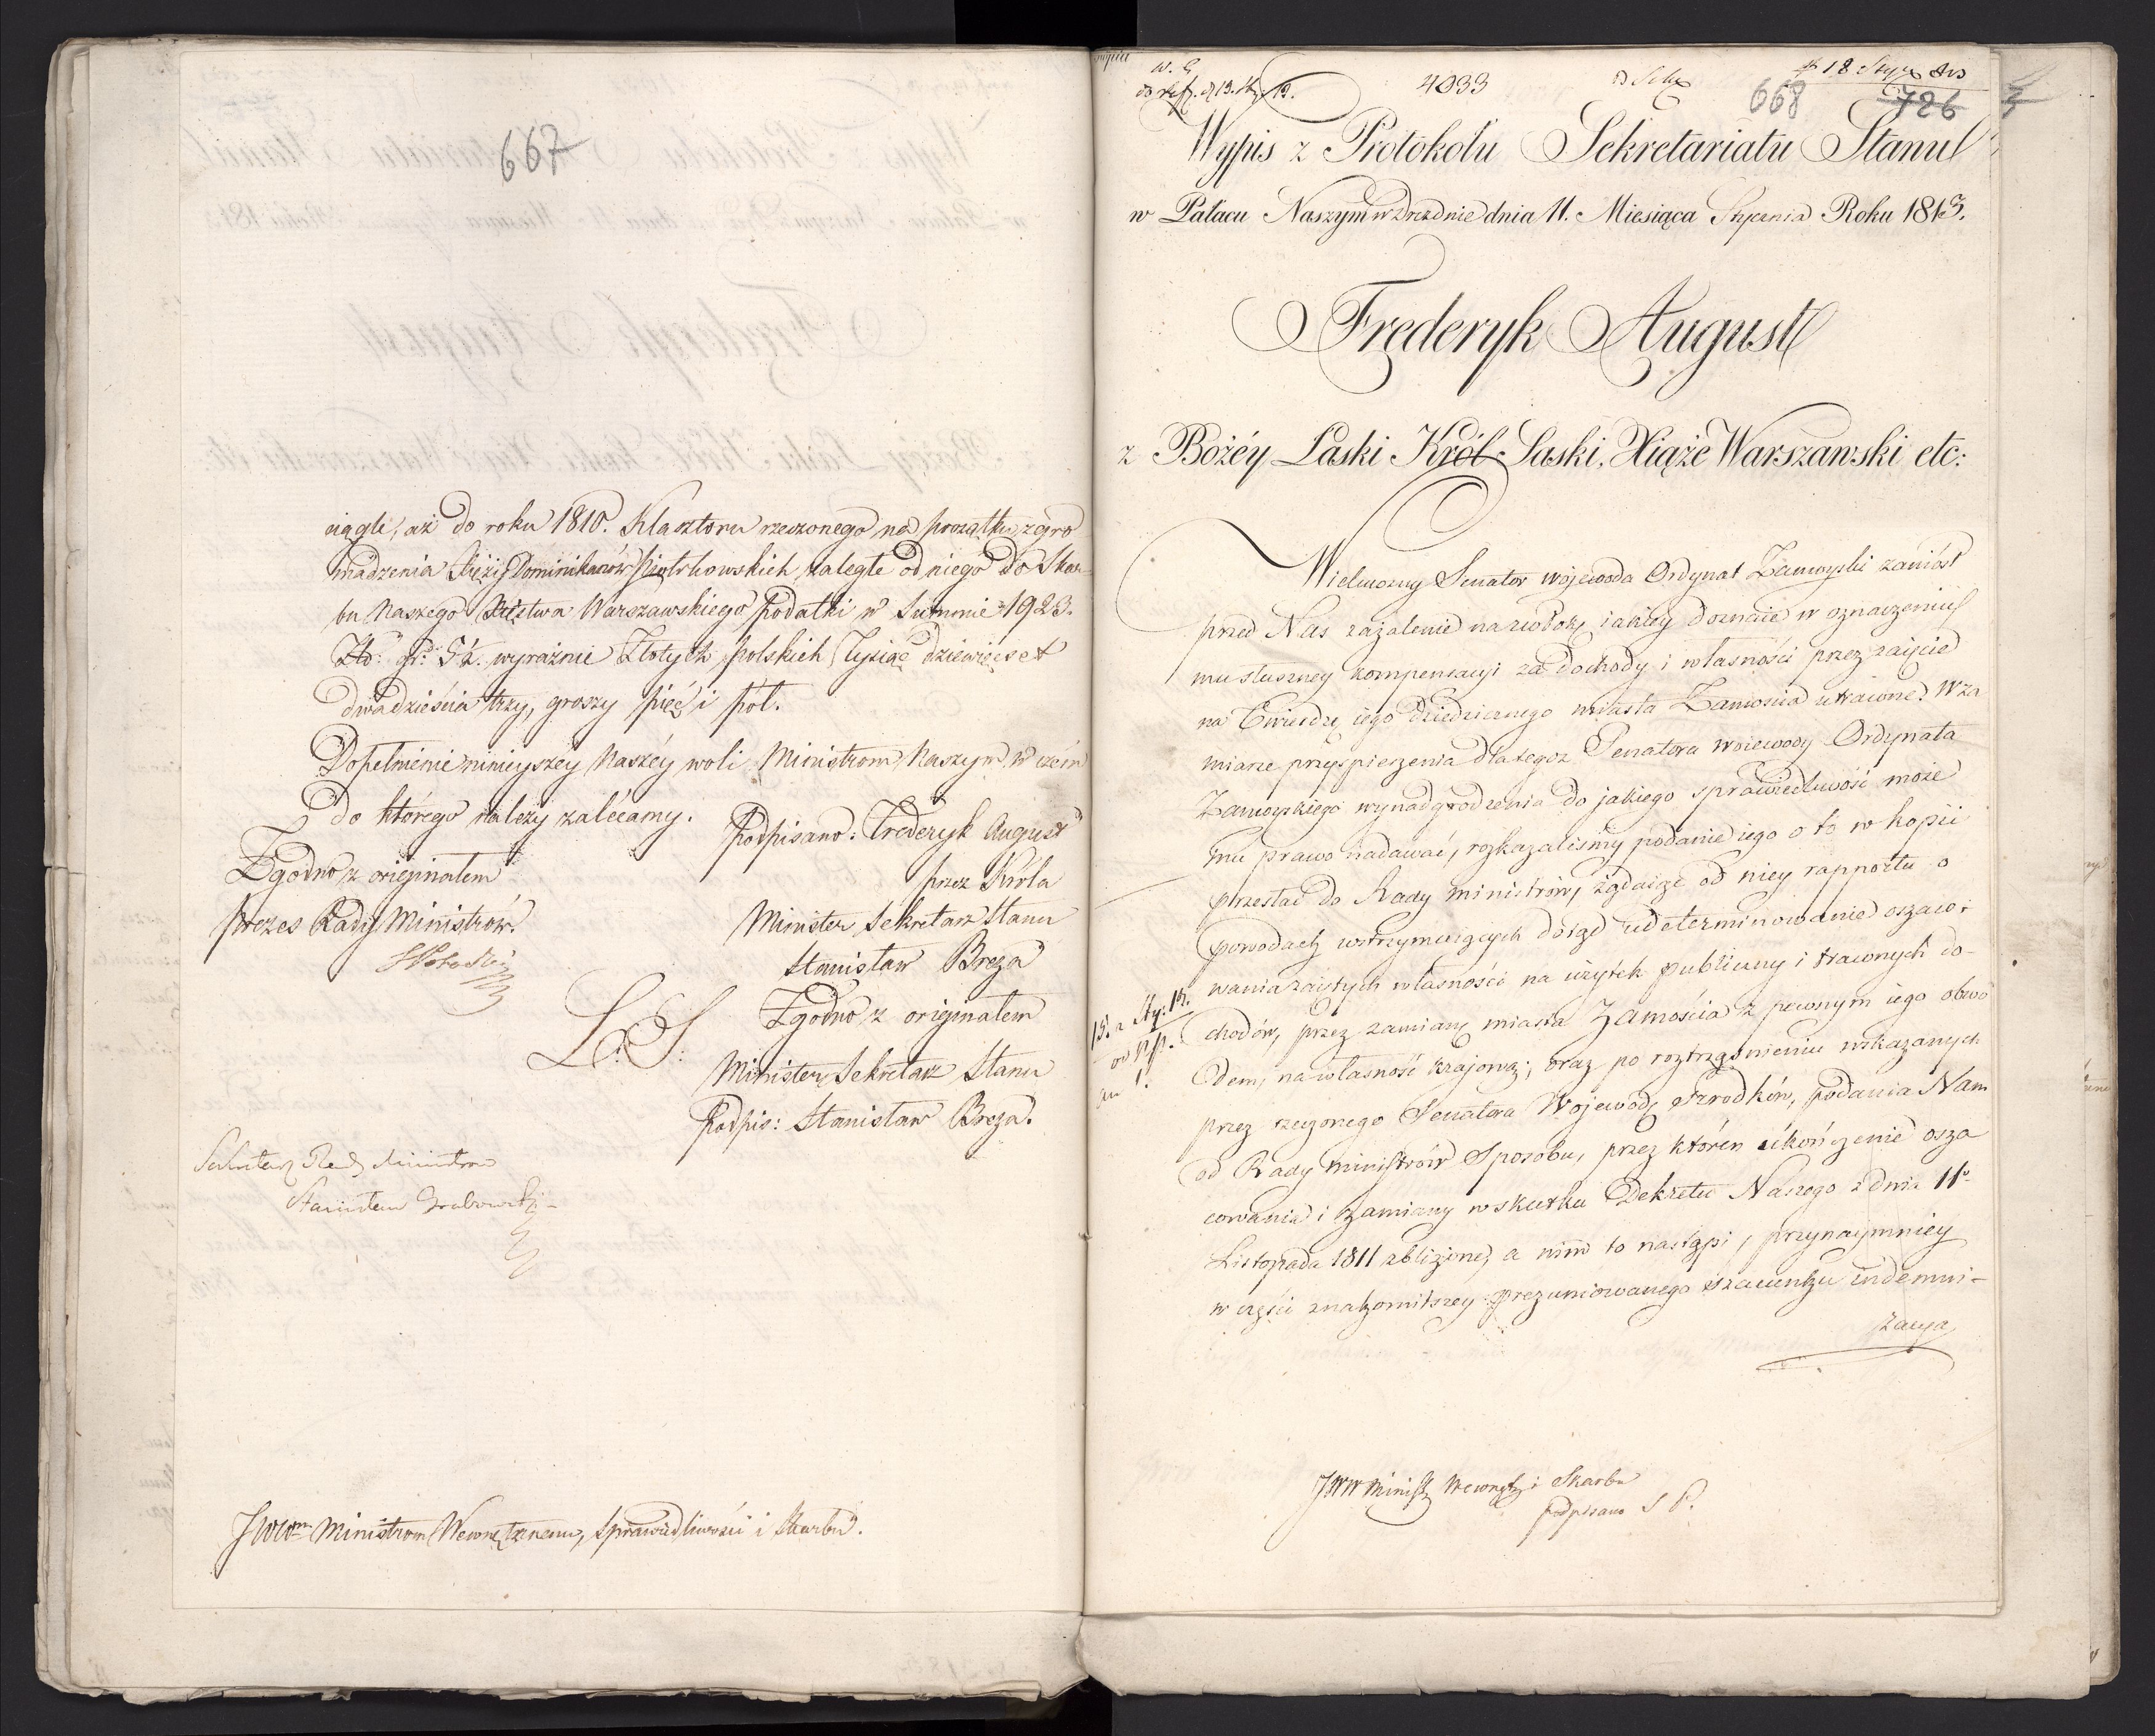 667
ciągle, aż do roku 1810. Klasztoru rzeczonego na początku zgro
madzenia Xięży Dominikanów Piotrkowskich zaległe od niego do Skar-
bu Naszego Xięstwa Warszawskiego podatki w Summie 1923.
Zło: gr: 5½. wyraźnie Złotych polskich Tysiąc dziewięćset
dwadzieścia trzy, groszy pięć i pół.
Dopełnienie ninieyszéy Naszéy woli Ministrom Naszym w czém
do którego należy zalécamy.
Podpisano: Frederyk August
przez Króla
Minister Sekretarz Stanu
Stanisław Breza
Zgodno z originałem
Prezes Rady Ministrów.
L. S.
Zgodno z originałem
Minister Sekretarz Stanu
Podpis: Stanisław Breza.
Sekretarz Rady Ministrów
Stanisław Grabowski
JWWm Ministrom Wewnętrznemu, Sprawiedliwości i Skarbu.
4033
668
726
Wypis z Protokołu Sekretariatu Stanu
w Pałacu Naszym w Dreźnie dnia 11. Miesiąca Stycznia Roku 1813.
Frederyk August
z Bożéy Łaski Król Saski, Xiąże Warszawski etc:
Wielmożny Senator wojewoda Ordynat Zamoyski zaniósł
przed Nas zażalenie na zwłokę iakiey doznaie w oznaczeniu
mu słuszney kompensacyi za dochody i własności przez zaięcie
na Twierdzę iego dziedzicznego miasta Zamościa utracone. W za
miarze przyśpieszenia dla tegoż Senatora woiewody Ordynata
Zamoyskiego wynadgrodzenia do jakiego sprawiedliwość może
mu prawo nadawać, rozkazaliśmy podanie iego o to w kopii
przesłać do Rady ministrów, żądaiąc od niey rapportu o
powodach wstrzymuiących dotąd udeterminowanie oszaco-
wania zaiętych własności na użytek publiczny i straconych do-
chodów, przez zamianę miasta Zamościa z pewnym iego obwo
dem, na własność krajową; oraz po roztrząśnieniu wskazanych
przez rzeczonego Senatora Wojewodę środków, podania Nam
od Rady Ministrów Sposobu, przez któren ukończenie osza
cowania i zamiany w skutku Dekretu Naszego z dnia 11o
Listopada 1811 zbliżone, a nim to nastąpi, przynaymniey
w części znakomitszey prezumowanego szacunku indemni-
zacya
JWW Ministr Wewnętrz i Skarbu
podpisano S P.